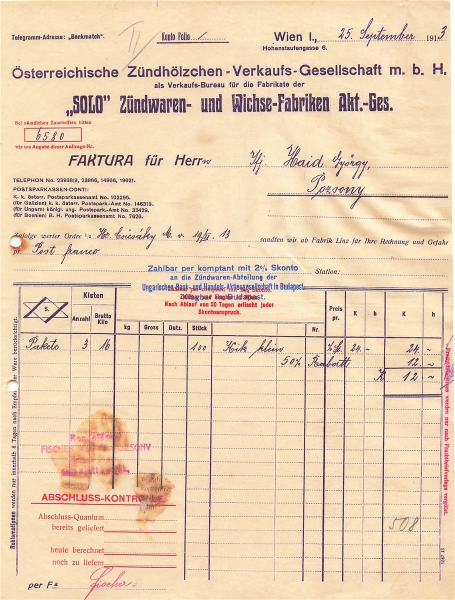 Telegramm-Adresse: „Benkmateh“.
Konto Folio
Wien I., 25. September 1913
Hohenstaufengasse 6.
Österreichische Zündhölzchen-Verkaufs-Gesellschaft m. b. H.
als Verkaufs-Bureau für die Fabrikate der
„SOLO“ Zündwaren- und Wichse-Fabriken Akt.-Ges.
Bei sämtlichen Zuschriften bitten
6580
wir um Angabe dieser Auftrags-Nr.
FAKTURA für Herrn Haid György,
Pozsony
POSTSPARKASSEN-CONTI:
K. k. österr. Postsparkassenamt No.
(für Galizien) k. k. österr. Postspark.-Amt No. 146313.
(für Ungarn) königl. ung. Postspark.-Amt No. 33429.
(für Bosnien) B. H. Postsparkassenamt No. 7626.
Zufolge werter Ordre 13 sandten wir ab Fabrik Linz für Ihre Rechnung und Gefahr
pr. Post franco
Station:
Zahlbar per komptant mit 2% Skonto
an die Zündwaren-Abteilung der
Ungarischen Bank- und Handels-Aktiengesellschaft in Budapest.
Klagbar Budapest.
Nach Ablauf von 30 Tagen erlischt jeder
Skontoanspruch.
S.
Kisten
Anzahl
Brutto Kilo
kg
Gross
Dutz.
Stück
Nr.
Preis pr.
K
h
K
h
Pakete 3 16 100 Kik klein 24 - 24 -
50% Rabatt 12 -
K 12 -
ABSCHLUSS-KONTROLLE
Abschluss-Quantum
bereits geliefert
heute berechnet
noch zu liefern
508
per Fa Fischer